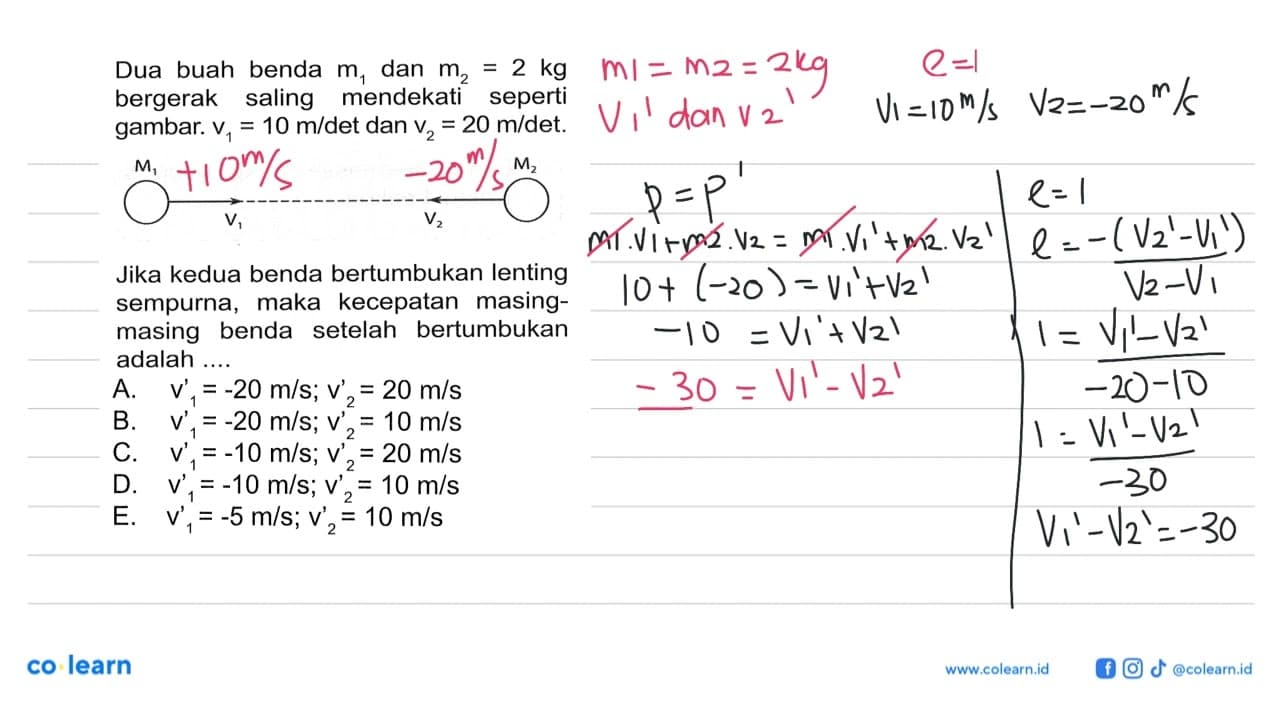 Dua buah benda m₁ dan m₂ = 2 kg
bergerak saling mendekati seperti
gambar. v₁ = 10 m/det dan v₂ = 20 m/det.
M₁ +10 m/s -20 m/s M₂
V₁ V₂
Jika kedua benda bertumbukan lenting
sempurna, maka kecepatan masing-
masing benda setelah bertumbukan
adalah ....
A. v'₁ = -20 m/s; v'₂ = 20 m/s
B. v'₁ = -20 m/s; v'₂ = 10 m/s
C. v'₁ = -10 m/s; v'₂ = 20 m/s
D. v'₁ = -10 m/s; v'₂ = 10 m/s
E. v'₁ = -5 m/s; v'₂ = 10 m/s
m1 = m2 = 2kg
V1' dan V2'
e=1
V1=10 m/s V2=-20 m/s
p = p'
m1.V1+m2.V2 = m1.V1'+m2.V2'
10+(-20)=V1'+V2'
-10 = V1'+V2'
-30 = V1'-V2'
e=1
e = -(V2'-V1')
V2-V1
1 = V1'-V2'
-20-10
1 = V1'-V2'
-30
V1'-V2'=-30
co learn
www.colearn.id
@colearn.id